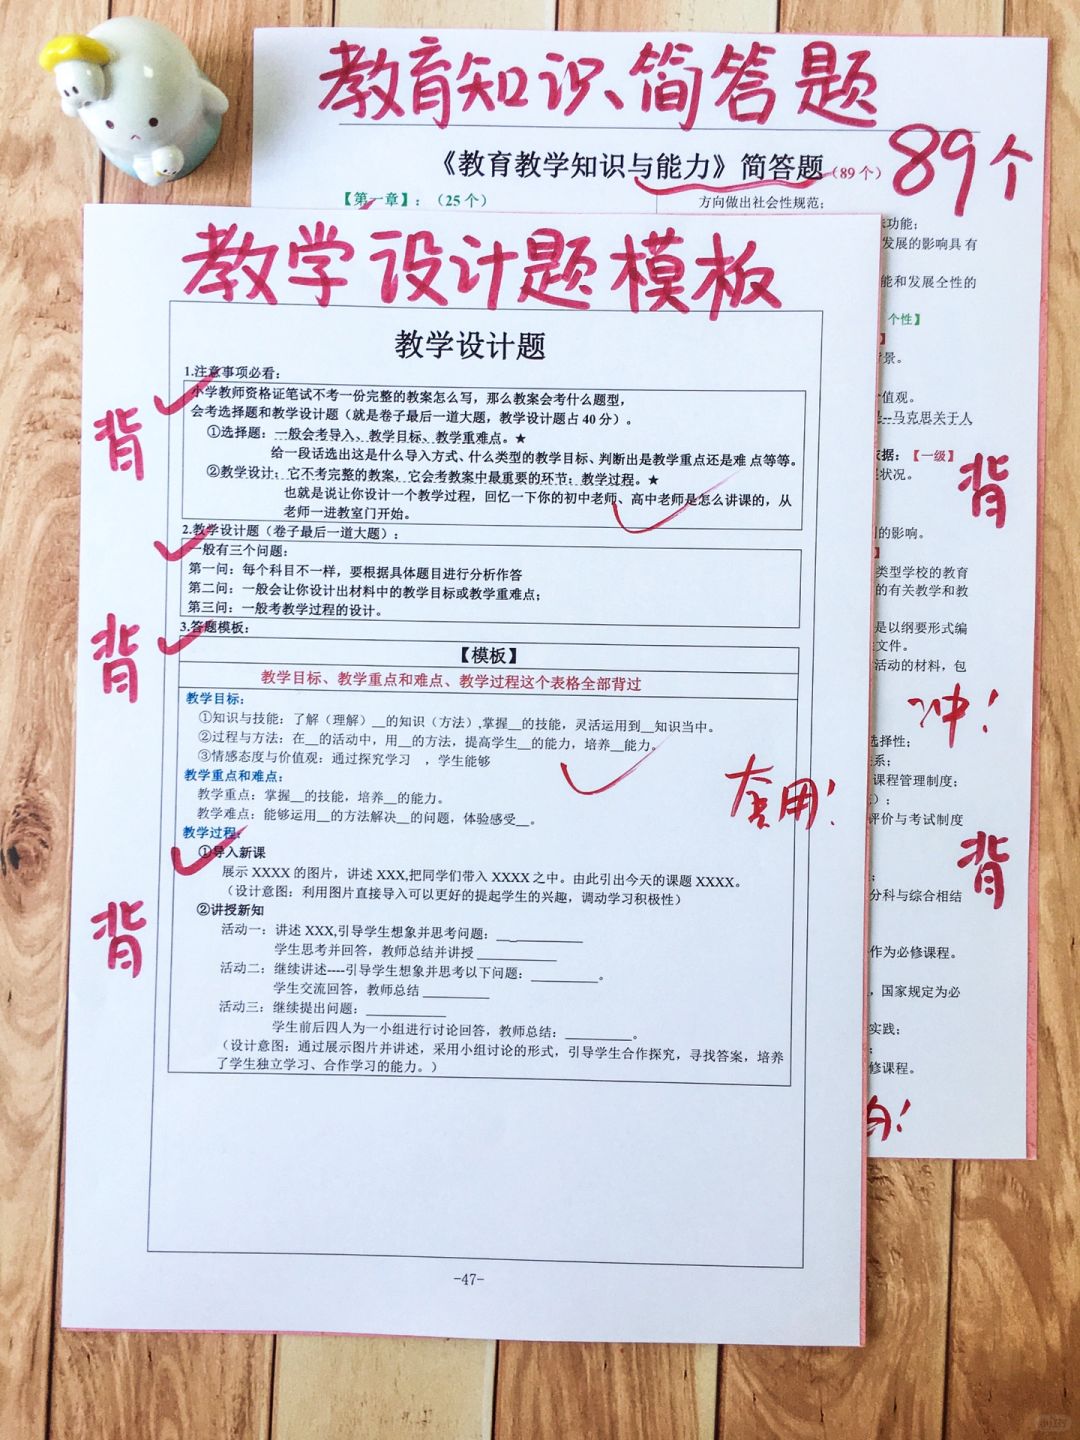 教育知识、简答题
《教育教学知识与能力》简答题（89个）
89个
【第一章】：（25个）
方向做出社会性规范；
功能；
发展的影响具有
能和发展全性的
个性】
景。
值观。
--马克思关于人
据：【一级】
状况。
的影响。
类型学校的教育
的有关教学和教
是以纲要形式编
文件。
活动的材料，包
选择性；
系；
课程管理制度；
）；
评价与考试制度
分科与综合相结
作为必修课程。
，国家规定为必
实践；
修课程。
背
冲！
背
教学设计题模板
教学设计题
1.注意事项必看：
小学教师资格证笔试不考一份完整的教案怎么写，那么教案会考什么题型，
会考选择题和教学设计题（就是卷子最后一道大题，教学设计题占 40 分）。
①选择题：一般会考导入、教学目标、教学重难点。★
给一段话选出这是什么导入方式、什么类型的教学目标、判断出是教学重点还是难 点等等。
②教学设计：它不考完整的教案，它会考教案中最重要的环节：教学过程。★
也就是说让你设计一个教学过程，回忆一下你的初中老师、高中老师是怎么讲课的，从
老师一进教室门开始。
2.教学设计题（卷子最后一道大题）：
一般有三个问题：
第一问：每个科目不一样，要根据具体题目进行分析作答
第二问：一般会让你设计出材料中的教学目标或教学重难点；
第三问：一般考教学过程的设计。
3.答题模板：
【模板】
教学目标、教学重点和难点、教学过程这个表格全部背过
教学目标：
①知识与技能：了解（理解）__的知识（方法）,掌握__的技能，灵活运用到__知识当中。
②过程与方法：在__的活动中，用__的方法，提高学生__的能力，培养__能力。
③情感态度与价值观：通过探究学习 ，学生能够
教学重点和难点：
教学重点：掌握__的技能，培养__的能力。
教学难点：能够运用__的方法解决__的问题，体验感受__。
教学过程：
①导入新课
展示 XXXX 的图片，讲述 XXX,把同学们带入 XXXX 之中。由此引出今天的课题 XXXX。
（设计意图：利用图片直接导入可以更好的提起学生的兴趣，调动学习积极性）
②讲授新知
活动一：讲述 XXX,引导学生想象并思考问题：____________
学生思考并回答，教师总结并讲授____________
活动二：继续讲述----引导学生想象并思考以下问题：__________。
学生交流回答，教师总结__________
活动三：继续提出问题：____________
学生前后四人为一小组进行讨论回答，教师总结：__________。
（设计意图：通过展示图片并讲述，采用小组讨论的形式，引导学生合作探究，寻找答案，培养
了学生独立学习、合作学习的能力。）
背
背
背
套用！
-47-